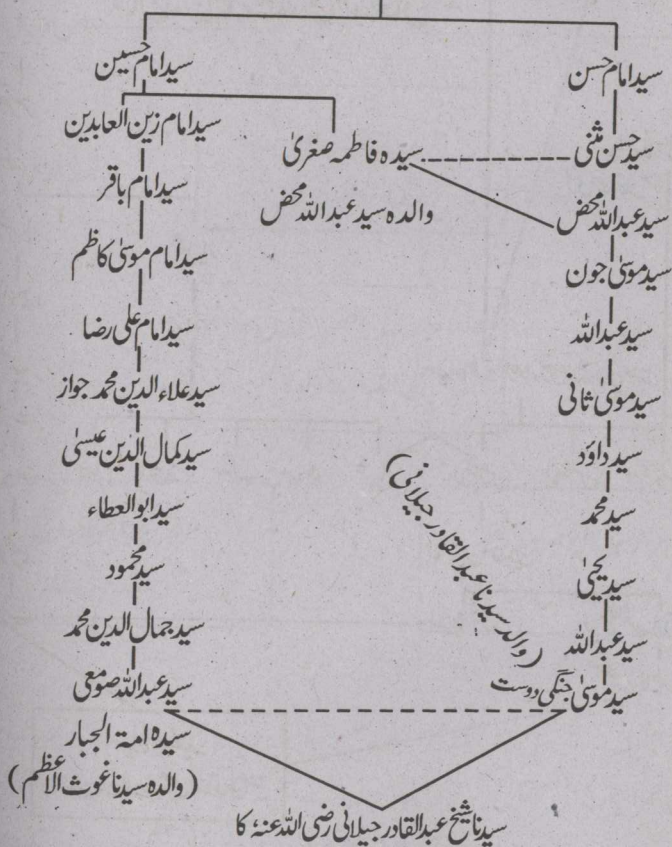 سید امام حسن
سید حسن مثنی
سید عبداللہ محض
سید موسیٰ جون
سید عبداللہ
سید موسیٰ ثانی
سید داؤد
سید محمد
سید یحییٰ
سید عبداللہ
سید موسیٰ جنگی دوست
(والد سیدنا عبدالقادر جیلانی)
سیدہ فاطمہ صغریٰ
والدہ سید عبداللہ محض
سید امام حسین
سید امام زین العابدین
سید امام باقر
سید امام موسیٰ کاظم
سید امام علی رضا
سید علاء الدین محمد جواز
سید کمال الدین عیسیٰ
سید ابوالعطاء
سید محمود
سید جمال الدین محمد
سید عبداللہ صومعی
سیدہ امۃ الجبار
(والدہ سیدنا غوث الاعظم)
سیدنا شیخ عبدالقادر جیلانی رضی اللہ عنہٗ کا